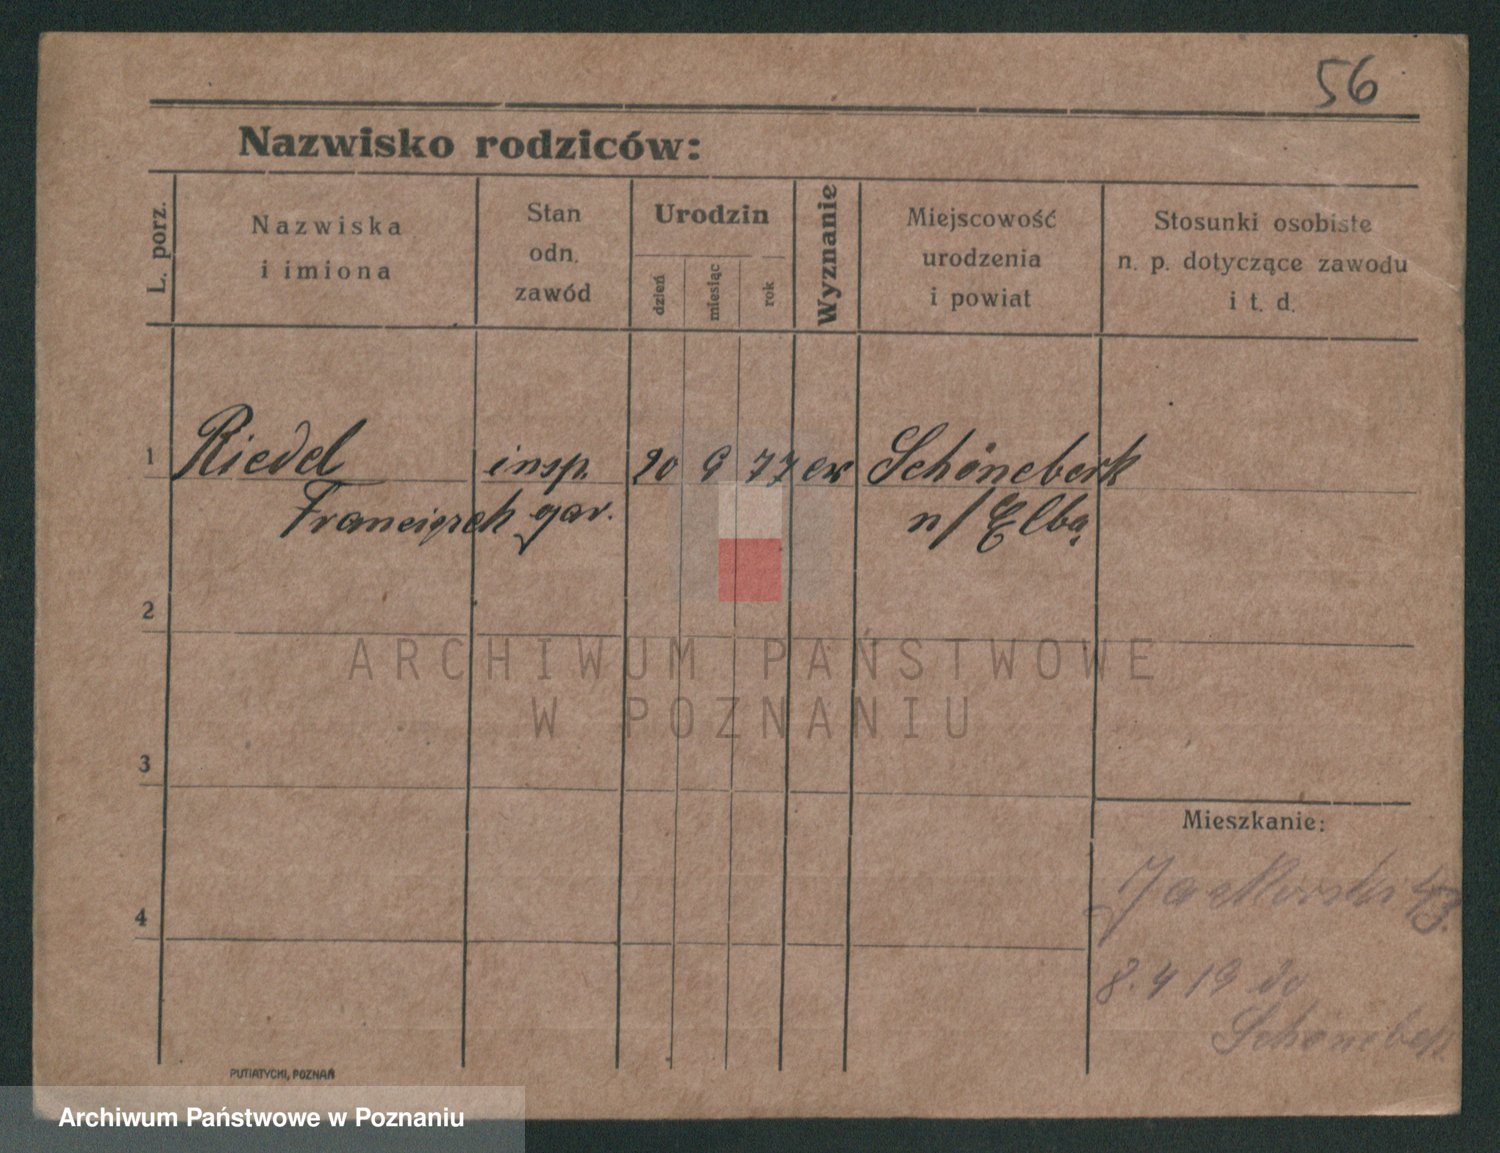 56
Nazwisko rodziców:
L. porz.
Nazwiska
i imiona
Stan
odn.
zawód
Urodzin
dzień
miesiąc
rok
Wyznanie
Miejscowość
urodzenia
i powiat
Stosunki osobiste
n. p. dotyczące zawodu
i t. d.
1 Riedel insp. 20 9 77 ew Schöneberk
Franciszek gar. n/Elbą
2
ARCHIWUM PAŃSTWOWE
W POZNANIU
3
Mieszkanie:
4
8.4 19 do
PUTIATYCKI, POZNAŃ
Archiwum Państwowe w Poznaniu